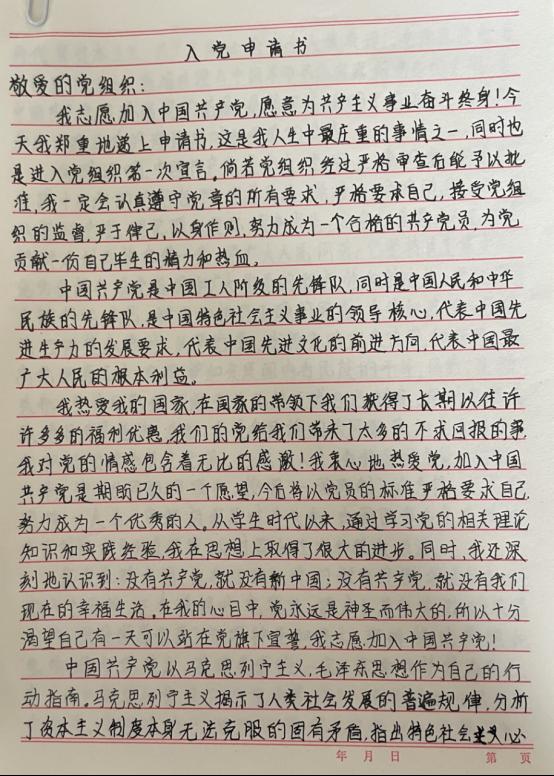 入党申请书
敬爱的党组织：
我志愿加入中国共产党，愿意为共产主义事业奋斗终身！今
天我郑重地递上申请书，这是我人生中最庄重的事情之一，同时也
是进入党组织第一次宣言。倘若党组织经过严格审查后能予以批
准，我一定会认真遵守党章的所有要求，严格要求自己，接受党组
织的监督，严于律己，以身作则，努力成为一个合格的共产党员，为党
贡献一份自己毕生的精力和热血。
中国共产党是中国工人阶级的先锋队，同时是中国人民和中华
民族的先锋队，是中国特色社会主义事业的领导核心，代表中国先
进生产力的发展要求，代表中国先进文化的前进方向，代表中国最
广大人民的根本利益。
我热爱我的国家，在国家的带领下我们获得了长期以往许
许多多的福利优惠，我们的党给我们带来了太多的不求回报的事，
我对党的情感包含着无比的感激！我衷心地热爱党，加入中国
共产党是期盼已久的一个愿望，今后将以党员的标准严格要求自己，
努力成为一个优秀的人。从学生时代以来，通过学习党的相关理论
知识和实践经验，我在思想上取得了很大的进步。同时，我还深
刻地认识到：没有共产党，就没有新中国；没有共产党，就没有我们
现在的幸福生活。在我的心目中，党永远是神圣而伟大的，所以十分
渴望自己有一天可以站在党旗下宣誓，我志愿加入中国共产党！
中国共产党以马克思列宁主义，毛泽东思想作为自己的行
动指南。马克思列宁主义揭示了人类社会发展的普遍规律，分析
了资本主义制度本身无法克服的固有矛盾，指出特色社会主义必
年 月 日 第 页